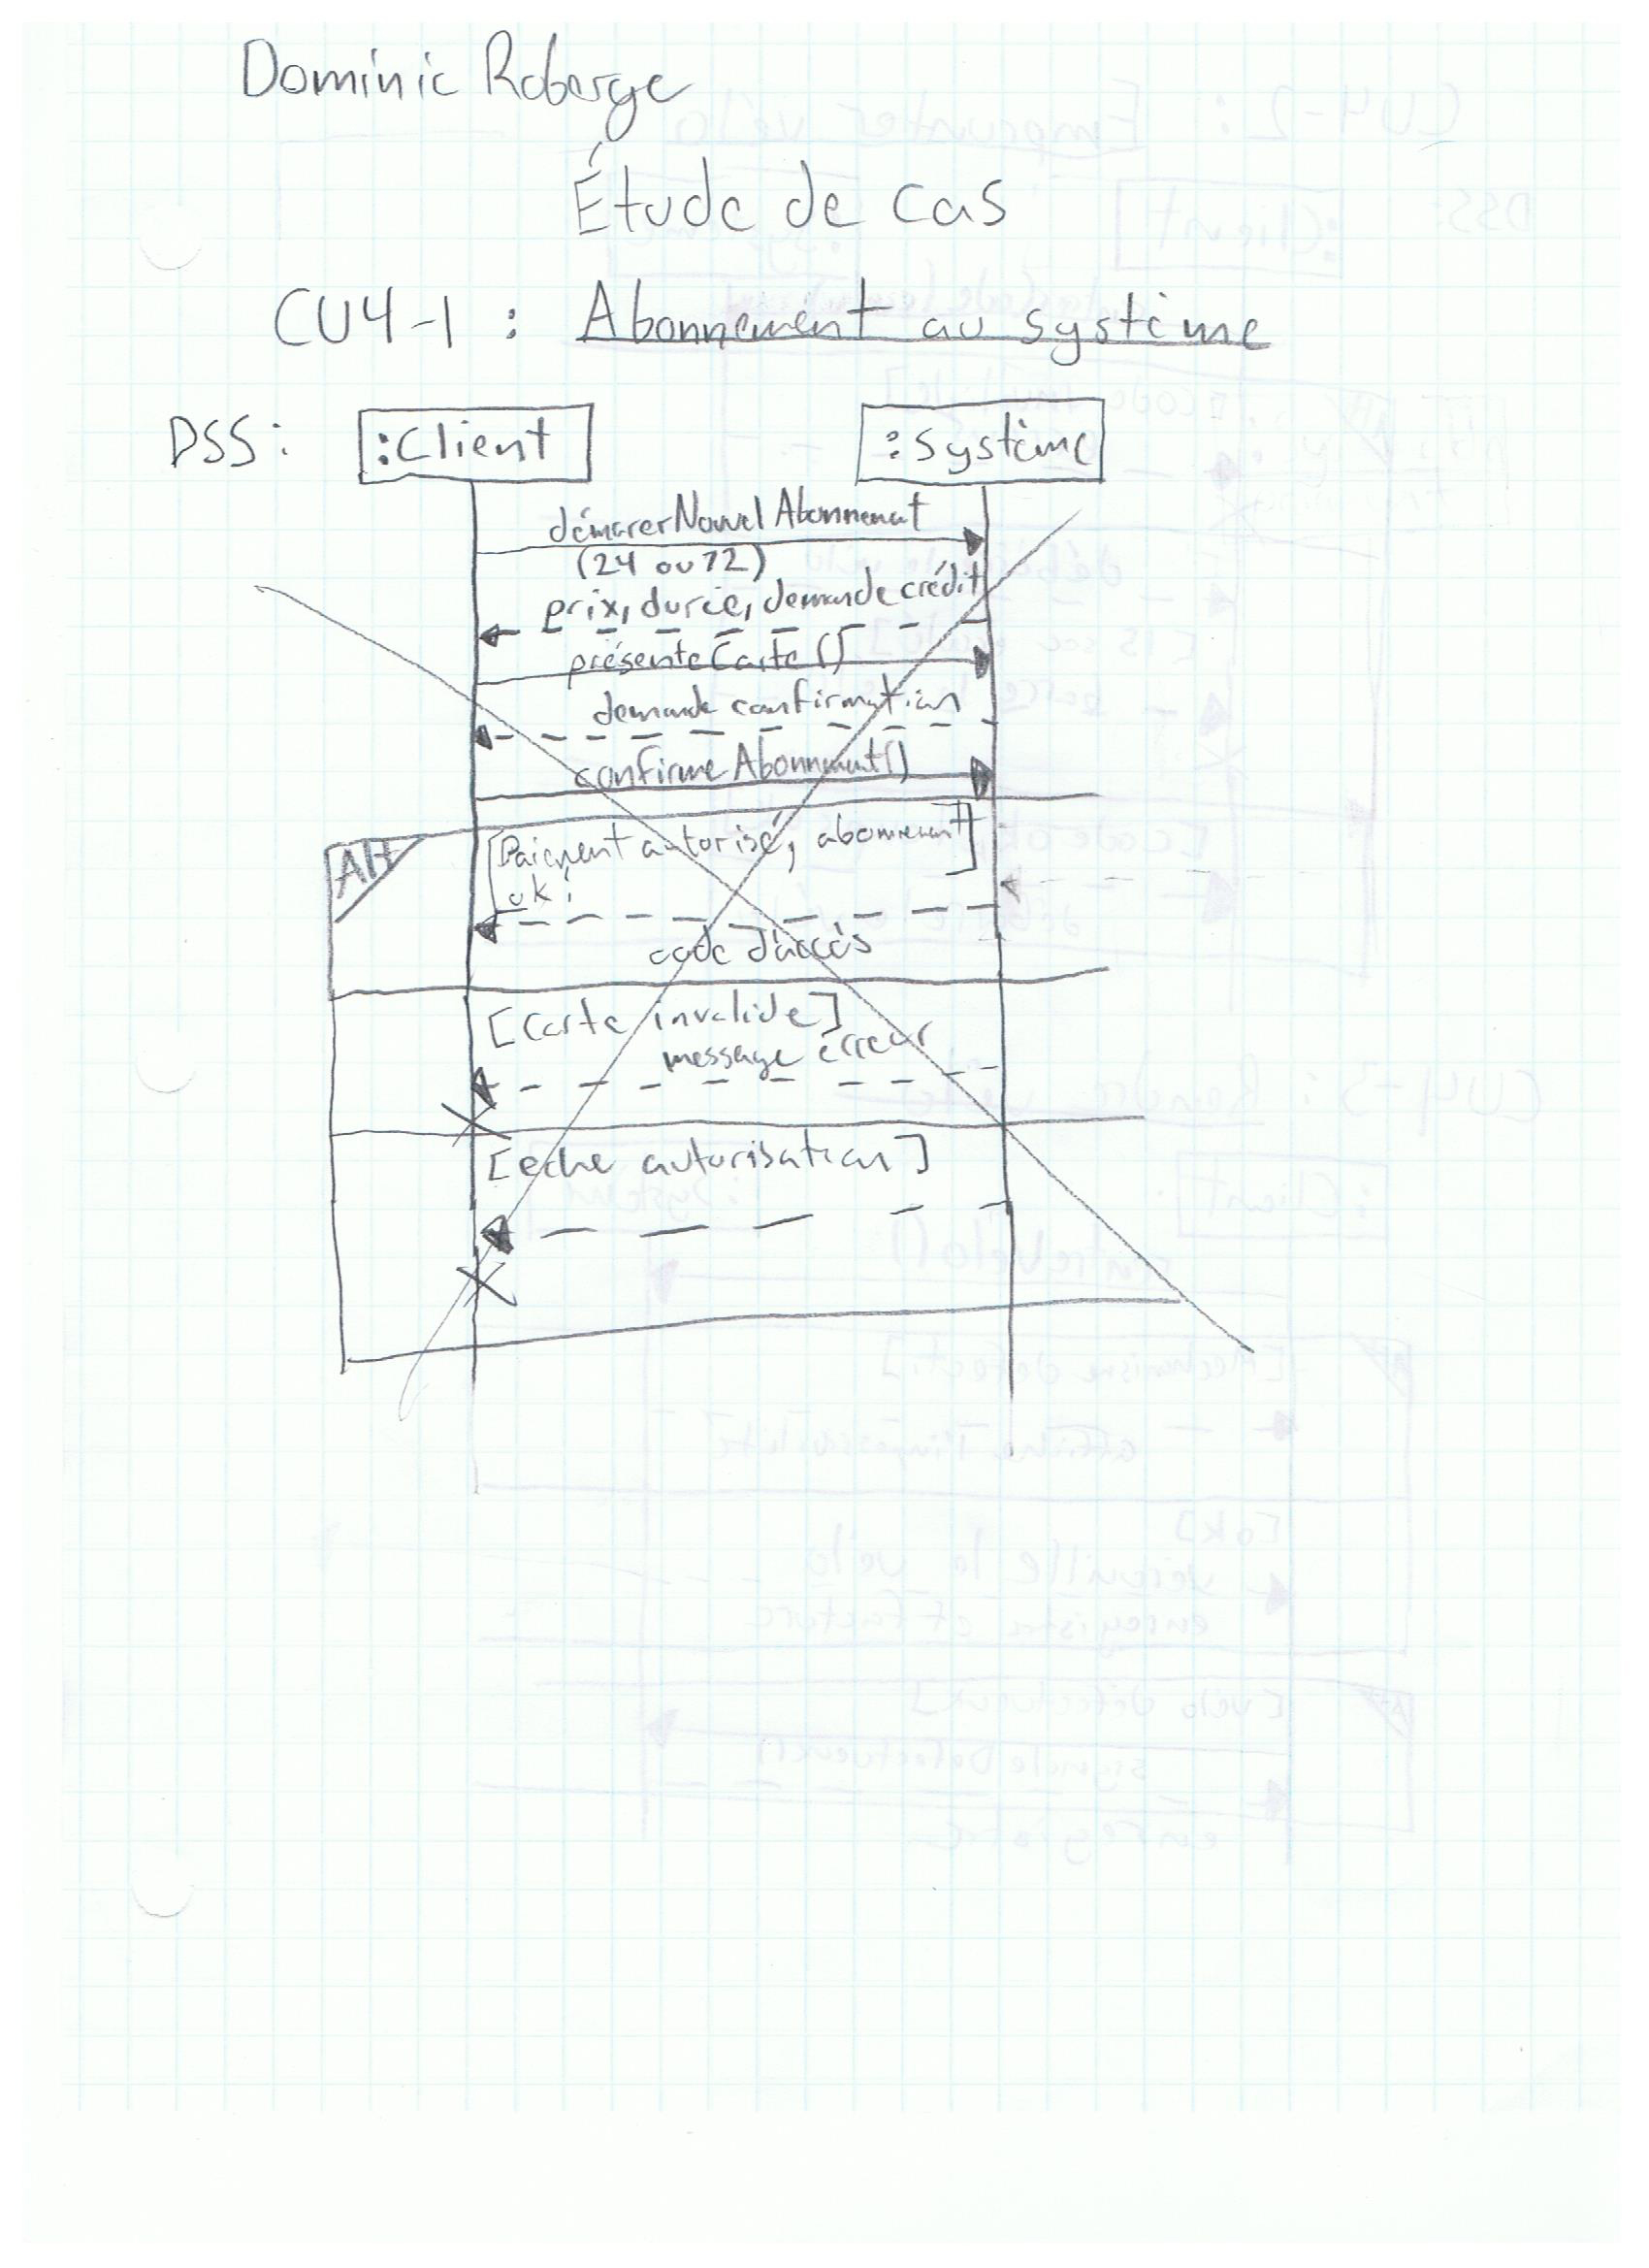 Dominic Roberge
Étude de cas
CU4-1 : Abonnement au système
DSS: :Client :Système
démarerNouvelAbonnement
(24 ou 72)
prix, durée, demande crédit
présenteCarte()
demande confirmation
confirmeAbonnement()
Alt [Paiement autorisé, abonnement]
ok!
code d'accès
[Carte invalide]
message erreur
[eche autorisation]